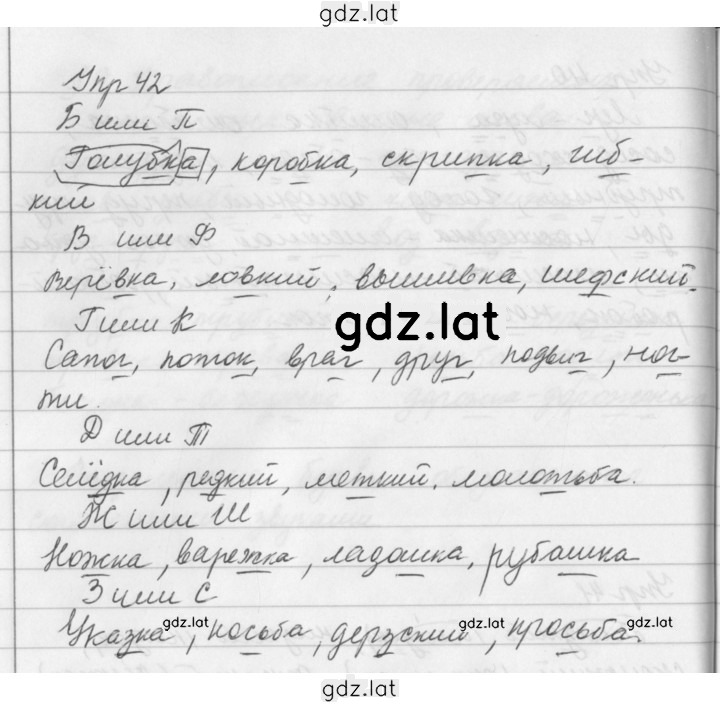 gdz.lat
Упр 42
Б или П
Голубка, коробка, скрипка, гиб-
кий
В или Ф
Верёвка, ловкий, вышивка, шефский.
gdz.lat
Г или К
Сапог, поток, враг, друг, подвиг, ног-
ти.
Д или Т
Селёдка, редкий, меткий, молотьба.
Ж или Ш
Ножка, варежка, ладошка, рубашка
З или С
gdz.lat gdz.lat gdz.lat
Указка, косьба, дерзский, просьба.
gdz.lat